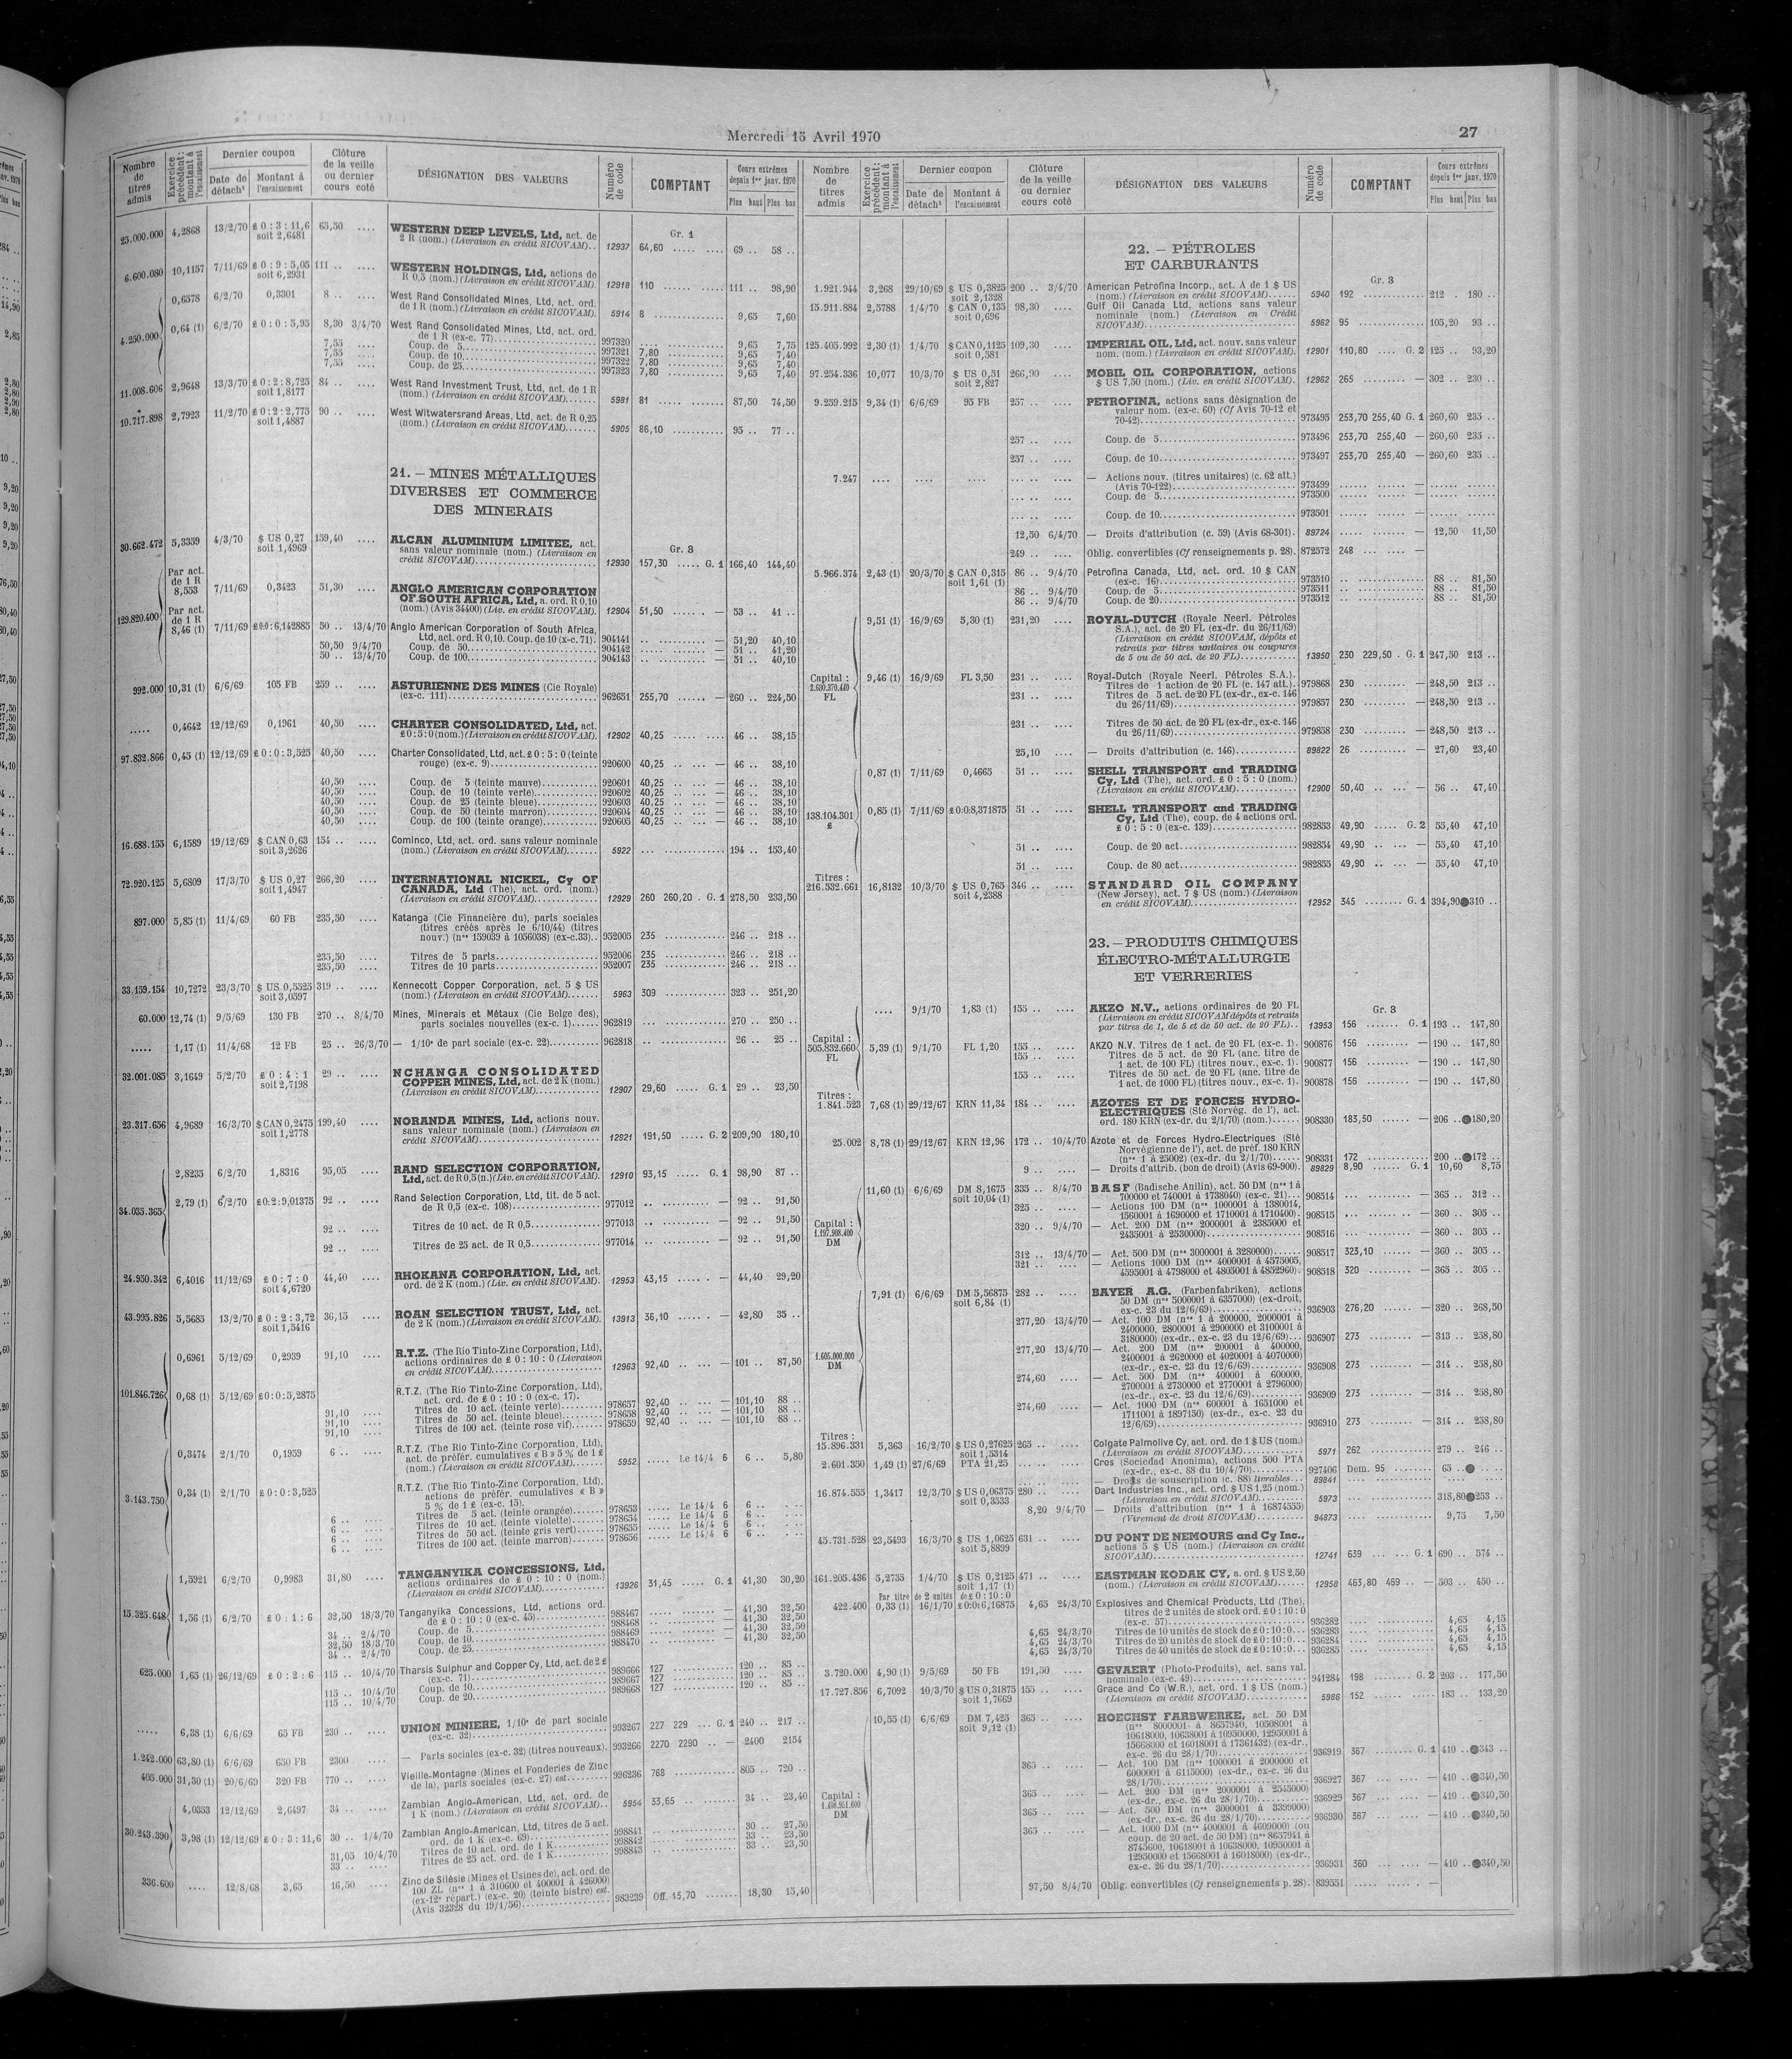 Mercredi 15 Avril 1970
27
Nombre de titres admis
Exercice précédent : montant à l'encaissement
Dernier coupon
Date de détach^t
Montant à l'encaissement
Clôture de la veille ou dernier cours coté
DÉSIGNATION DES VALEURS
Numéro de code
COMPTANT
Cours extrêmes depuis 1^er janv. 1970
Plus haut Plus bas
Gr. 1
25.000.000 4,2868 13/2/70 £ 0 : 3 : 11,6 soit 2,6481 65,50 .... WESTERN DEEP LEVELS, Ltd, act. de
2 R (nom.) (Livraison en crédit SICOVAM).. 12937 64,60 69 .. 58 ..
6.600.080 10,1157 7/11/69 £ 0 : 9 : 5,05 soit 6,2931 111 .. .... WESTERN HOLDINGS, Ltd, actions de
R 0,5 (nom.) (Livraison en crédit SICOVAM). 12918 110 111 .. 98,90
4.250.000 0,6578 6/2/70 0,3301 8 .. .... West Rand Consolidated Mines, Ltd, act. ord.
de 1 R (nom.) (Livraison en crédit SICOVAM). 5914 8 9,65 7,60
0,64 (1) 6/2/70 £ 0 : 0 : 5,95 8,30 3/4/70 West Rand Consolidated Mines, Ltd, act. ord.
de 1 R (ex-c. 77) 997320 9,65 7,75
7,55 .... Coup. de 5 997321 7,80 9,65 7,40
7,55 .... Coup. de 10 997322 7,80 9,65 7,40
7,55 .... Coup. de 25 997323 7,80 9,65 7,40
11.008.606 2,9648 13/3/70 £ 0 : 2 : 8,725 soit 1,8177 84 .. .... West Rand Investment Trust, Ltd, act. de 1 R
(nom.) (Livraison en crédit SICOVAM) 5981 81 87,50 74,50
10.717.898 2,7923 11/2/70 £ 0 : 2 : 2,775 soit 1,4887 90 .. .... West Witwatersrand Areas, Ltd, act. de R 0,25
(nom.) (Livraison en crédit SICOVAM) 5905 86,10 95 .. 77 ..
21. — MINES MÉTALLIQUES
DIVERSES ET COMMERCE
DES MINERAIS
Gr. 3
30.662.472 5,3359 4/3/70 $ US 0,27 soit 1,4969 159,40 .... ALCAN ALUMINIUM LIMITEE, act.
sans valeur nominale (nom.) (Livraison en
crédit SICOVAM) 12930 157,30 ..... G. 1 166,40 144,40
129.820.400 Par act. de 1 R 8,553 7/11/69 0,3423 51,30 .... ANGLO AMERICAN CORPORATION
OF SOUTH AFRICA, Ltd, a. ord. R 0,10
(nom.) (Avis 34400) (Liv. en crédit SICOVAM). 12904 51,50 — 53 .. 41 ..
Par act. de 1 R 8,46 (1) 7/11/69 £0:0:6,142885 50 .. 13/4/70 Anglo American Corporation of South Africa,
Ltd, act. ord. R 0,10. Coup. de 10 (x-c. 71). 904141 — 51,20 40,10
50,50 9/4/70 Coup. de 50 904142 — 51 .. 41,20
50 .. 13/4/70 Coup. de 100 904143 — 51 .. 40,10
992.000 10,31 (1) 6/6/69 105 FB 259 .. .... ASTURIENNE DES MINES (Cie Royale)
(ex-c. 111) 962651 255,70 — 260 .. 224,50
..... 0,4642 12/12/69 0,1961 40,50 .... CHARTER CONSOLIDATED, Ltd, act.
£0:5:0 (nom.) (Livraison en crédit SICOVAM). 12902 40,25 — 46 .. 38,15
97.832.866 0,45 (1) 12/12/69 £ 0 : 0 : 3,525 40,50 .... Charter Consolidated, Ltd, act. £ 0 : 5 : 0 (teinte
rouge) (ex-c. 9) 920600 40,25 — 46 .. 38,10
40,50 .... Coup. de 5 (teinte mauve) 920601 40,25 — 46 .. 38,10
40,50 .... Coup. de 10 (teinte verte) 920602 40,25 — 46 .. 38,10
40,50 .... Coup. de 25 (teinte bleue) 920603 40,25 — 46 .. 38,10
40,50 .... Coup. de 50 (teinte marron) 920604 40,25 — 46 .. 38,10
40,50 .... Coup. de 100 (teinte orange) 920605 40,25 — 46 .. 38,10
16.688.155 6,1589 19/12/69 $ CAN 0,63 soit 3,2626 154 .. .... Cominco, Ltd, act. ord. sans valeur nominale
(nom.) (Livraison en crédit SICOVAM) 5922 194 .. 153,40
72.920.125 5,6809 17/3/70 $ US 0,27 soit 1,4947 266,20 .... INTERNATIONAL NICKEL, Cy OF
CANADA, Ltd (The), act. ord. (nom.)
(Livraison en crédit SICOVAM) 12929 260 260,20 . G. 1 278,50 233,50
897.000 5,85 (1) 11/4/69 60 FB 235,50 .... Katanga (Cie Financière du), parts sociales
(titres créés après le 6/10/44) (titres
nouv.) (n^os 159039 à 1056038) (ex-c.33).. 952005 235 246 .. 218 ..
235,50 .... Titres de 5 parts 952006 235 246 .. 218 ..
235,50 .... Titres de 10 parts 952007 235 246 .. 218 ..
33.159.154 10,7272 23/3/70 $ US 0,5525 soit 3,0597 319 .. .... Kennecott Copper Corporation, act. 5 $ US
(nom.) (Livraison en crédit SICOVAM) 5963 309 323 .. 251,20
60.000 12,74 (1) 9/5/69 130 FB 270 .. 8/4/70 Mines, Minerais et Métaux (Cie Belge des),
parts sociales nouvelles (ex-c. 1) 962819 270 .. 250 ..
..... 1,17 (1) 11/4/68 12 FB 25 .. 26/3/70 — 1/10^e de part sociale (ex-c. 22) 962818 26 .. 25 ..
32.001.085 3,1649 5/2/70 £ 0 : 4 : 1 soit 2,7198 29 .. .... NCHANGA CONSOLIDATED
COPPER MINES, Ltd, act. de 2 K (nom.)
(Livraison en crédit SICOVAM) 12907 29,60 ..... G. 1 29 .. 23,50
23.317.656 4,9689 16/3/70 $ CAN 0,2475 soit 1,2778 199,40 .... NORANDA MINES, Ltd, actions nouv.
sans valeur nominale (nom.) (Livraison en
crédit SICOVAM) 12921 191,50 ..... G. 2 209,90 180,10
34.035.365 2,8235 6/2/70 1,8316 95,05 .... RAND SELECTION CORPORATION,
Ltd, act. de R 0,5 (n.) (Liv. en crédit SICOVAM). 12910 93,15 ..... G. 1 98,90 87 ..
2,79 (1) 6/2/70 £0:2:9,01375 92 .. .... Rand Selection Corporation, Ltd, tit. de 5 act.
de R 0,5 (ex-c. 108) 977012 — 92 .. 91,50
92 .. .... Titres de 10 act. de R 0,5 977013 — 92 .. 91,50
92 .. .... Titres de 25 act. de R 0,5 977014 — 92 .. 91,50
24.950.342 6,4016 11/12/69 £ 0 : 7 : 0 soit 4,6720 44,40 .... RHOKANA CORPORATION, Ltd, act.
ord. de 2 K (nom.) (Liv. en crédit SICOVAM). 12953 43,15 — 44,40 29,20
43.995.826 5,5685 13/2/70 £ 0 : 2 : 3,72 soit 1,5416 36,15 .... ROAN SELECTION TRUST, Ltd, act.
de 2 K (nom.) (Livraison en crédit SICOVAM). 13913 36,10 — 42,80 35 ..
101.846.726 0,6961 5/12/69 0,2939 91,10 .... R.T.Z. (The Rio Tinto-Zinc Corporation, Ltd),
actions ordinaires de £ 0 : 10 : 0 (Livraison
en crédit SICOVAM) 12963 92,40 — 101 .. 87,50
0,68 (1) 5/12/69 £0:0:5,2875 R.T.Z. (The Rio Tinto-Zinc Corporation, Ltd),
act. ord. de £ 0 : 10 : 0 (ex-c. 17).
91,10 .... Titres de 10 act. (teinte verte) 978657 92,40 — 101,10 88 ..
91,10 .... Titres de 50 act. (teinte bleue) 978658 92,40 — 101,10 88 ..
91,10 .... Titres de 100 act. (teinte rose vif) 978659 92,40 — 101,10 88 ..
3.143.750 0,3474 2/1/70 0,1959 6 .. .... R.T.Z. (The Rio Tinto-Zinc Corporation, Ltd),
act. de préfér. cumulatives « B » 5 % de 1 £
(nom.) (Livraison en crédit SICOVAM) 5952 ..... Le 14/4 6 6 .. 5,80
0,34 (1) 2/1/70 £ 0 : 0 : 3,525 R.T.Z. (The Rio Tinto-Zinc Corporation, Ltd),
actions de préfér. cumulatives « B »
5 % de 1 £ (ex-c. 15).
6 .. .... Titres de 5 act. (teinte orangée) 978653 ..... Le 14/4 6 6 ..
6 .. .... Titres de 10 act. (teinte violette) 978654 ..... Le 14/4 6 6 ..
6 .. .... Titres de 50 act. (teinte gris vert) 978655 ..... Le 14/4 6 6 ..
6 .. .... Titres de 100 act. (teinte marron) 978656 ..... Le 14/4 6 6 ..
15.325.648 1,5921 6/2/70 0,9983 31,80 .... TANGANYIKA CONCESSIONS, Ltd,
actions ordinaires de £ 0 : 10 : 0 (nom.)
(Livraison en crédit SICOVAM) 13926 31,45 ..... G. 1 41,30 30,20
1,56 (1) 6/2/70 £ 0 : 1 : 6 32,50 18/3/70 Tanganyika Concessions, Ltd, actions ord.
de £ 0 : 10 : 0 (ex-c. 45) 988467 — 41,30 32,50
34 .. 2/4/70 Coup. de 5 988468 — 41,30 32,50
32,50 18/3/70 Coup. de 10 988469 — 41,30 32,50
34 .. 2/4/70 Coup. de 25 988470 — 41,30 32,50
625.000 1,65 (1) 26/12/69 £ 0 : 2 : 6 115 .. 10/4/70 Tharsis Sulphur and Copper Cy, Ltd, act. de 2 £
(ex-c. 71) 989666 127 120 .. 85 ..
115 .. 10/4/70 Coup. de 10 989667 127 120 .. 85 ..
115 .. 10/4/70 Coup. de 20 989668 127 120 .. 85 ..
..... 6,38 (1) 6/6/69 65 FB 230 .. .... UNION MINIERE, 1/10^e de part sociale
(ex-c. 32) 993267 227 229 ... G. 1 240 .. 217 ..
1.242.000 63,80 (1) 6/6/69 650 FB 2300 .... — Parts sociales (ex-c. 32) (titres nouveaux). 993266 2270 2290 .. — 2400 2154
405.000 31,30 (1) 20/6/69 320 FB 770 .. .... Vieille-Montagne (Mines et Fonderies de Zinc
de la), parts sociales (ex-c. 27) est 996236 768 805 .. 720 ..
30.243.390 4,0353 12/12/69 2,6497 34 .. .... Zambian Anglo-American, Ltd, act. ord. de
1 K (nom.) (Livraison en crédit SICOVAM).. 5954 33,65 34 .. 23,40
3,98 (1) 12/12/69 £ 0 : 3 : 11,6 30 .. 1/4/70 Zambian Anglo-American, Ltd, titres de 5 act.
ord. de 1 K (ex-c. 69) 998841 30 .. 27,50
31,05 10/4/70 Titres de 10 act. ord. de 1 K 998842 33 .. 23,50
33 .. .... Titres de 25 act. ord. de 1 K 998843 33 .. 23,50
336.600 .... 12/8/68 3,65 16,50 .... Zinc de Silésie (Mines et Usines de), act. ord. de
100 ZL (n^os 1 à 310600 et 400001 à 426000)
(ex-12^e répart.) (ex-c. 20) (teinte bistre) est.
(Avis 32328 du 19/1/56) 983239 Off. 45,70 18,30 15,40
Nombre de titres admis
Exercice précédent : montant à l'encaissement
Dernier coupon
Date de détach^t
Montant à l'encaissement
Clôture de la veille ou dernier cours coté
DÉSIGNATION DES VALEURS
Numéro de code
COMPTANT
Cours extrêmes depuis 1^er janv. 1970
Plus haut Plus bas
22. — PÉTROLES
ET CARBURANTS
Gr. 3
1.921.944 3,268 29/10/69 $ US 0,3825 soit 2,1328 200 .. 3/4/70 American Petrofina Incorp., act. A de 1 $ US
(nom.) (Livraison en crédit SICOVAM) 5940 192 212 . 180 ..
15.911.884 2,5788 1/4/70 $ CAN 0,135 soit 0,696 98,30 .... Gulf Oil Canada Ltd, actions sans valeur
nominale (nom.) (Livraison en Crédit
SICOVAM) 5962 95 105,20 93 ..
125.405.992 2,30 (1) 1/4/70 $ CAN 0,1125 soit 0,581 109,30 .... IMPERIAL OIL, Ltd, act. nouv. sans valeur
nom. (nom.) (Livraison en crédit SICOVAM). 12901 110,80 .... G. 2 125 .. 93,20
97.254.336 10,077 10/3/70 $ US 0,51 soit 2,827 266,90 .... MOBIL OIL CORPORATION, actions
$ US 7,50 (nom.) (Liv. en crédit SICOVAM). 12962 265 — 302 .. 230 ..
9.259.215 9,34 (1) 6/6/69 95 FB 257 .. .... PETROFINA, actions sans désignation de
valeur nom. (ex-c. 60) (Cf Avis 70-12 et
70-42) 973495 253,70 255,40 G. 1 260,60 235 ..
257 .. .... Coup. de 5 973496 253,70 255,40 — 260,60 235 ..
257 .. .... Coup. de 10 973497 253,70 255,40 — 260,60 235 ..
7.247 .... .... .... — Actions nouv. (titres unitaires) (c. 62 att.)
(Avis 70-122) 973499 —
Coup. de 5 973500 —
Coup. de 10 973501 —
12,50 6/4/70 — Droits d'attribution (c. 59) (Avis 68-301). 89724 — 12,50 11,50
249 .. .... Oblig. convertibles (Cf renseignements p. 28). 872572 248 —
5.966.374 2,43 (1) 20/3/70 $ CAN 0,315 soit 1,61 (1) 86 .. 9/4/70 Petrofina Canada, Ltd, act. ord. 10 $ CAN
(ex-c. 16) 973510 88 .. 81,50
86 .. 9/4/70 Coup. de 5 973511 88 .. 81,50
86 .. 9/4/70 Coup. de 20 973512 88 .. 81,50
Capital : 2.600.370.440 FL
9,51 (1) 16/9/69 5,30 (1) 231,20 .... ROYAL-DUTCH (Royale Neerl. Pétroles
S.A.), act. de 20 FL (ex-dr. du 26/11/69)
(Livraison en crédit SICOVAM, dépôts et
retraits par titres unitaires ou coupures
de 5 ou de 50 act. de 20 FL) 13950 230 229,50 . G. 1 247,50 213 ..
9,46 (1) 16/9/69 FL 3,50 231 .. .... Royal-Dutch (Royale Neerl. Pétroles S.A.).
Titres de 1 action de 20 FL (c. 147 att.). 979868 230 — 248,50 213 ..
231 .. .... Titres de 5 act. de 20 FL (ex-dr., ex-c. 146
du 26/11/69) 979857 230 — 248,50 213 ..
231 .. .... Titres de 50 act. de 20 FL (ex-dr., ex-c. 146
du 26/11/69) 979858 230 — 248,50 213 ..
25,10 .... — Droits d'attribution (c. 146) 89822 26 — 27,60 23,40
138.104.301 £
0,87 (1) 7/11/69 0,4665 51 .. .... SHELL TRANSPORT and TRADING
Cy, Ltd (The), act. ord. £ 0 : 5 : 0 (nom.)
(Livraison en crédit SICOVAM) 12900 50,40 — 56 .. 47,40
0,85 (1) 7/11/69 £0:0:8,371875 51 .. .... SHELL TRANSPORT and TRADING
Cy, Ltd (The), coup. de 4 actions ord.
£ 0 : 5 : 0 (ex-c. 139) 982853 49,90 ..... G. 2 55,40 47,10
51 .. .... Coup. de 20 act 982854 49,90 — 55,40 47,10
51 .. .... Coup. de 80 act 982855 49,90 — 55,40 47,10
Titres : 216.532.661 16,8132 10/3/70 $ US 0,765 soit 4,2388 346 .. .... STANDARD OIL COMPANY
(New Jersey), act. 7 $ US (nom.) (Livraison
en crédit SICOVAM) 12952 345 ........ G. 1 394,90●310 ..
23. — PRODUITS CHIMIQUES
ÉLECTRO-MÉTALLURGIE
ET VERRERIES
Gr. 3
Capital : 505.832.660 FL
.... 9/1/70 1,83 (1) 155 .. .... AKZO N.V., actions ordinaires de 20 FL
(Livraison en crédit SICOVAM dépôts et retraits
par titres de 1, de 5 et de 50 act. de 20 FL).. 13953 156 ........ G. 1 193 .. 147,80
5,39 (1) 9/1/70 FL 1,20 155 .. .... AKZO N.V. Titres de 1 act. de 20 FL (ex-c. 1). 900876 156 — 190 .. 147,80
155 .. .... Titres de 5 act. de 20 FL (anc. titre de
1 act. de 100 FL) (titres nouv., ex-c. 1). 900877 156 — 190 .. 147,80
155 .. .... Titres de 50 act. de 20 FL (anc. titre de
1 act. de 1000 FL) (titres nouv., ex-c. 1). 900878 156 — 190 .. 147,80
Titres : 1.841.523 7,68 (1) 29/12/67 KRN 11,34 184 .. .... AZOTES ET DE FORCES HYDRO-
ELECTRIQUES (Sté Norvég. de l'), act.
ord. 180 KRN (ex-dr. du 2/1/70) (nom.) 908330 183,50 — 206 ..●180,20
25.002 8,78 (1) 29/12/67 KRN 12,96 172 .. 10/4/70 Azote et de Forces Hydro-Electriques (Sté
Norvégienne de l'), act. de préf. 180 KRN
(n^os 1 à 25002) (ex-dr. du 2/1/70) 908331 172 200 ..●172 ..
9 .. .... — Droits d'attrib. (bon de droit) (Avis 69-900). 89829 8,90 ...... G. 1 10,60 8,75
Capital : 1.197.908.400 DM
11,60 (1) 6/6/69 DM 8,1675 soit 10,04 (1) 335 .. 8/4/70 BASF (Badische Anilin), act. 50 DM (n^os 1 à
700000 et 740001 à 1738040) (ex-c. 21) 908514 — 365 .. 312 ..
325 .. .... — Actions 100 DM (n^os 1000001 à 1380014,
1560001 à 1690000 et 1710001 à 1710400). 908515 — 360 .. 305 ..
320 .. 9/4/70 — Act. 200 DM (n^os 2000001 à 2385000 et
2435001 à 2530000) 908516 — 360 .. 305 ..
312 .. 13/4/70 — Act. 500 DM (n^os 3000001 à 3280000) 908517 323,10 — 360 .. 305 ..
321 .. .... — Actions 1000 DM (n^os 4000001 à 4575005,
4595001 à 4798000 et 4805001 à 4852960). 908518 320 — 365 .. 305 ..
1.605.000.000 DM
7,91 (1) 6/6/69 DM 5,56875 soit 6,84 (1) 282 .. .... BAYER A.G. (Farbenfabriken), actions
50 DM (n^os 5000001 à 6357000) (ex-droit,
ex-c. 23 du 12/6/69) 936903 276,20 — 320 .. 268,50
277,20 13/4/70 — Act. 100 DM (n^os 1 à 200000, 2000001 à
2400000, 2800001 à 2900000 et 3100001 à
3180000) (ex-dr., ex-c. 23 du 12/6/69) 936907 273 — 313 .. 258,80
277,20 13/4/70 — Act. 200 DM (n^os 200001 à 400000,
2400001 à 2620000 et 4020001 à 4070000)
(ex-dr., ex-c. 23 du 12/6/69) 936908 273 — 314 .. 258,80
274,60 .... — Act. 500 DM (n^os 400001 à 600000,
2700001 à 2730000 et 2770001 à 2796000)
(ex-dr., ex-c. 23 du 12/6/69) 936909 273 — 314 .. 258,80
274,60 .... — Act. 1000 DM (n^os 600001 à 1651000 et
1711001 à 1897150) (ex-dr., ex-c. 23 du
12/6/69) 936910 273 — 314 .. 258,80
Titres : 15.896.331 5,363 16/2/70 $ US 0,27625 soit 1,5314 265 .. .... Colgate Palmolive Cy, act. ord. de 1 $ US (nom.)
(Livraison en crédit SICOVAM) 5971 262 279 .. 246 ..
2.601.350 1,49 (1) 27/6/69 PTA 21,25 Cros (Sociedad Anonima), actions 500 PTA
(ex-dr., ex-c. 88 du 10/4/70) 927406 Dem. 95 65 ..●
— Droits de souscription (c. 88) livrables 89841
16.874.555 1,3417 12/3/70 $ US 0,06375 soit 0,3533 280 .. .... Dart Industries Inc., act. ord. $ US 1,25 (nom.)
(Livraison en crédit SICOVAM) 5973 318,80●253 ..
8,20 9/4/70 — Droits d'attribution (n^os 1 à 16874555)
(Virement de droit SICOVAM) 94873 9,75 7,50
45.731.528 23,5493 16/3/70 $ US 1,0625 soit 5,8899 631 .. .... DU PONT DE NEMOURS and Cy Inc.,
actions 5 $ US (nom.) (Livraison en crédit
SICOVAM) 12741 639 ... ... G. 1 690 .. 574 ..
161.205.436 5,2735 1/4/70 $ US 0,2125 soit 1,17 (1) 471 .. .... EASTMAN KODAK CY, a. ord. $ US 2,50
(nom.) (Livraison en crédit SICOVAM) 12958 463,80 469 .. — 503 .. 450 ..
Par titre de 2 unités de £ 0 : 10 : 0
422.400 0,33 (1) 16/1/70 £0:0:6,16875 4,65 24/3/70 Explosives and Chemical Products, Ltd (The),
titres de 2 unités de stock ord. £ 0 : 10 : 0
(ex-c. 57) 936282 4,65 4,15
4,65 24/3/70 Titres de 10 unités de stock de £ 0 : 10 : 0 936283 4,65 4,15
4,65 24/3/70 Titres de 20 unités de stock de £ 0 : 10 : 0 936284 4,65 4,15
4,65 24/3/70 Titres de 40 unités de stock de £ 0 : 10 : 0 936285 4,65 4,15
3.720.000 4,90 (1) 9/5/69 50 FB 191,50 .... GEVAERT (Photo-Produits), act. sans val.
nominale (ex-c. 49) 941284 198 ........ G. 2 203 .. 177,50
17.727.856 6,7092 10/3/70 $ US 0,31875 soit 1,7669 155 .. .... Grace and Co (W.R.), act. ord. 1 $ US (nom.)
(Livraison en crédit SICOVAM) 5986 152 183 .. 133,20
Capital : 1.498.951.600 DM
10,55 (1) 6/6/69 DM 7,425 soit 9,12 (1) 365 .. .... HOECHST FARBWERKE, act. 50 DM
(n^os 8000001 à 8657940, 10508001 à
10618000, 10638001 à 10950000, 12950001 à
15668000 et 16018001 à 17361432) (ex-dr.,
ex-c. 26 du 28/1/70) 936919 367 ........ G. 1 410 ..●343 ..
365 .. .... — Act. 100 DM (n^os 1000001 à 2000000 et
6000001 à 6115000) (ex-dr., ex-c. 26 du
28/1/70) 936927 367 — 410 ..●340,50
365 .. .... — Act. 200 DM (n^os 2000001 à 2545000)
(ex-dr., ex-c. 26 du 28/1/70) 936929 367 — 410 ..●340,50
365 .. .... — Act. 500 DM (n^os 3000001 à 3399000)
(ex-dr., ex-c. 26 du 28/1/70) 936930 367 — 410 ..●340,50
365 .. .... — Act. 1000 DM (n^os 4000001 à 4609000) (ou
coup. de 20 act. de 50 DM) (n^os 8657941 à
8745600, 10618001 à 10638000, 10950001 à
12950000 et 15668001 à 16018000) (ex-dr.,
ex-c. 26 du 28/1/70) 936931 360 — 410 ..●340,50
97,50 8/4/70 Oblig. convertibles (Cf renseignements p. 28). 839551 —